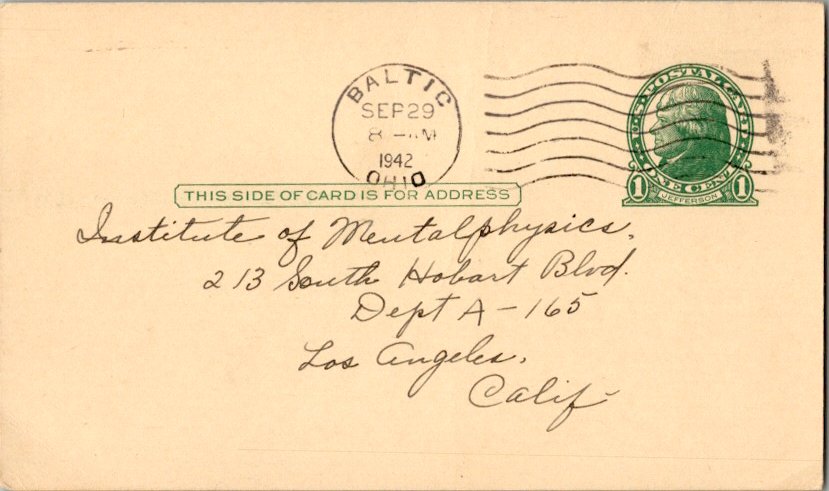 BALTIC
SEP 29
8 - AM
1942
OHIO
U·S·POSTAL CARD
ONE CENT
1 JEFFERSON 1
THIS SIDE OF CARD IS FOR ADDRESS
Institute of Mentalphysics,
213 South Hobart Blvd.
Dept A-165
Los Angeles,
Calif-